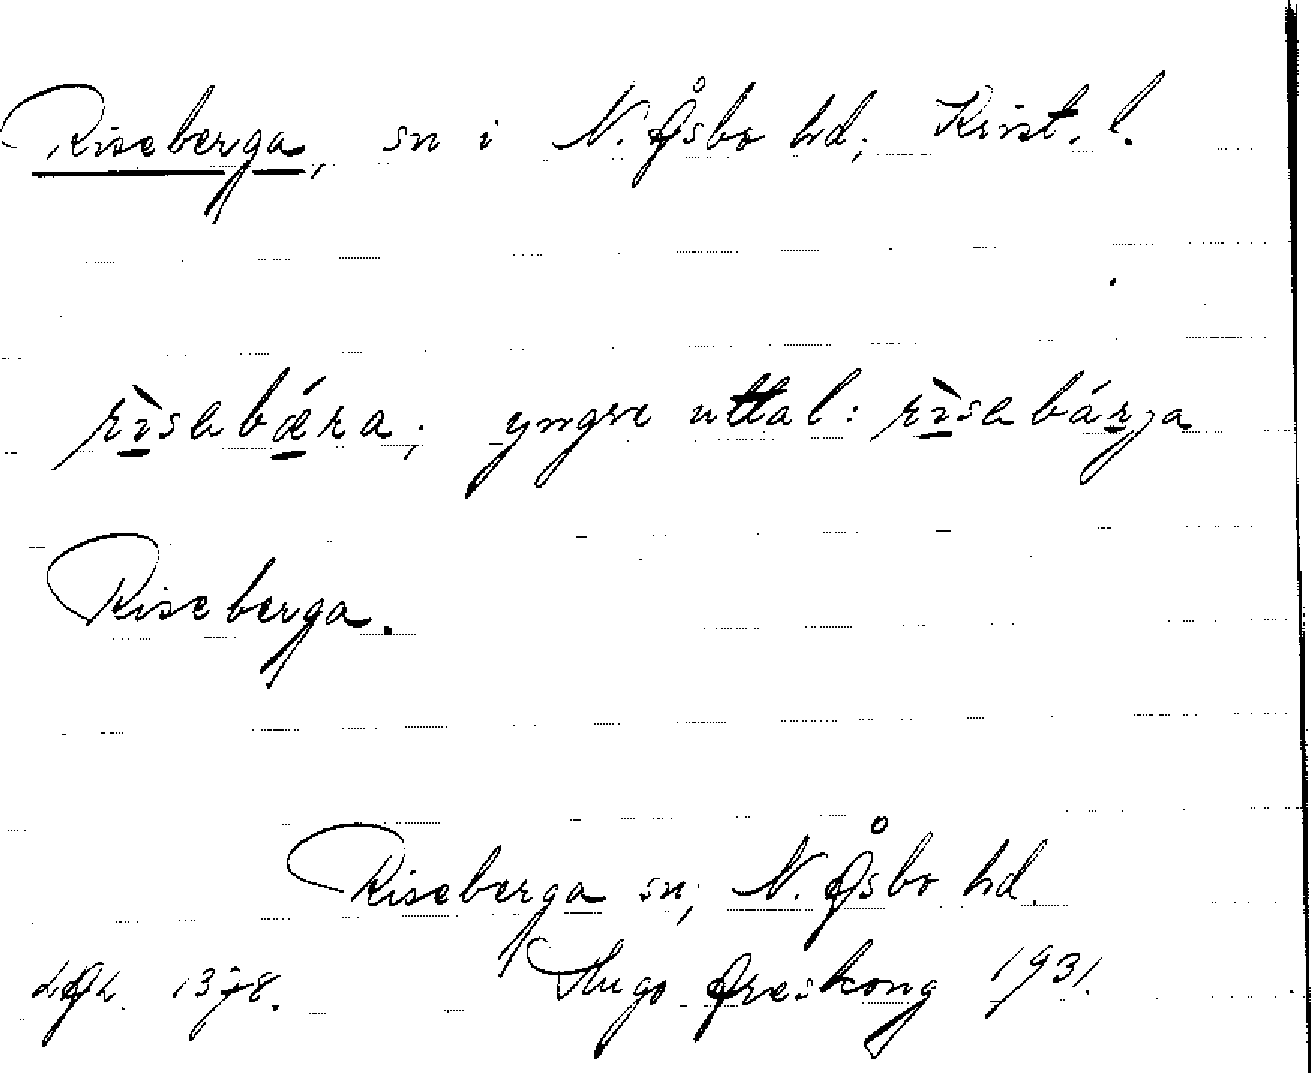 Riseberga, sn i N. Åsbo hd; Krist. l.
rìsabǽra; yngre uttal: rìsabárja
Riseberga.
Riseberga sn; N. Åsbo hd.
1378. Hugo Areskoug 1931.